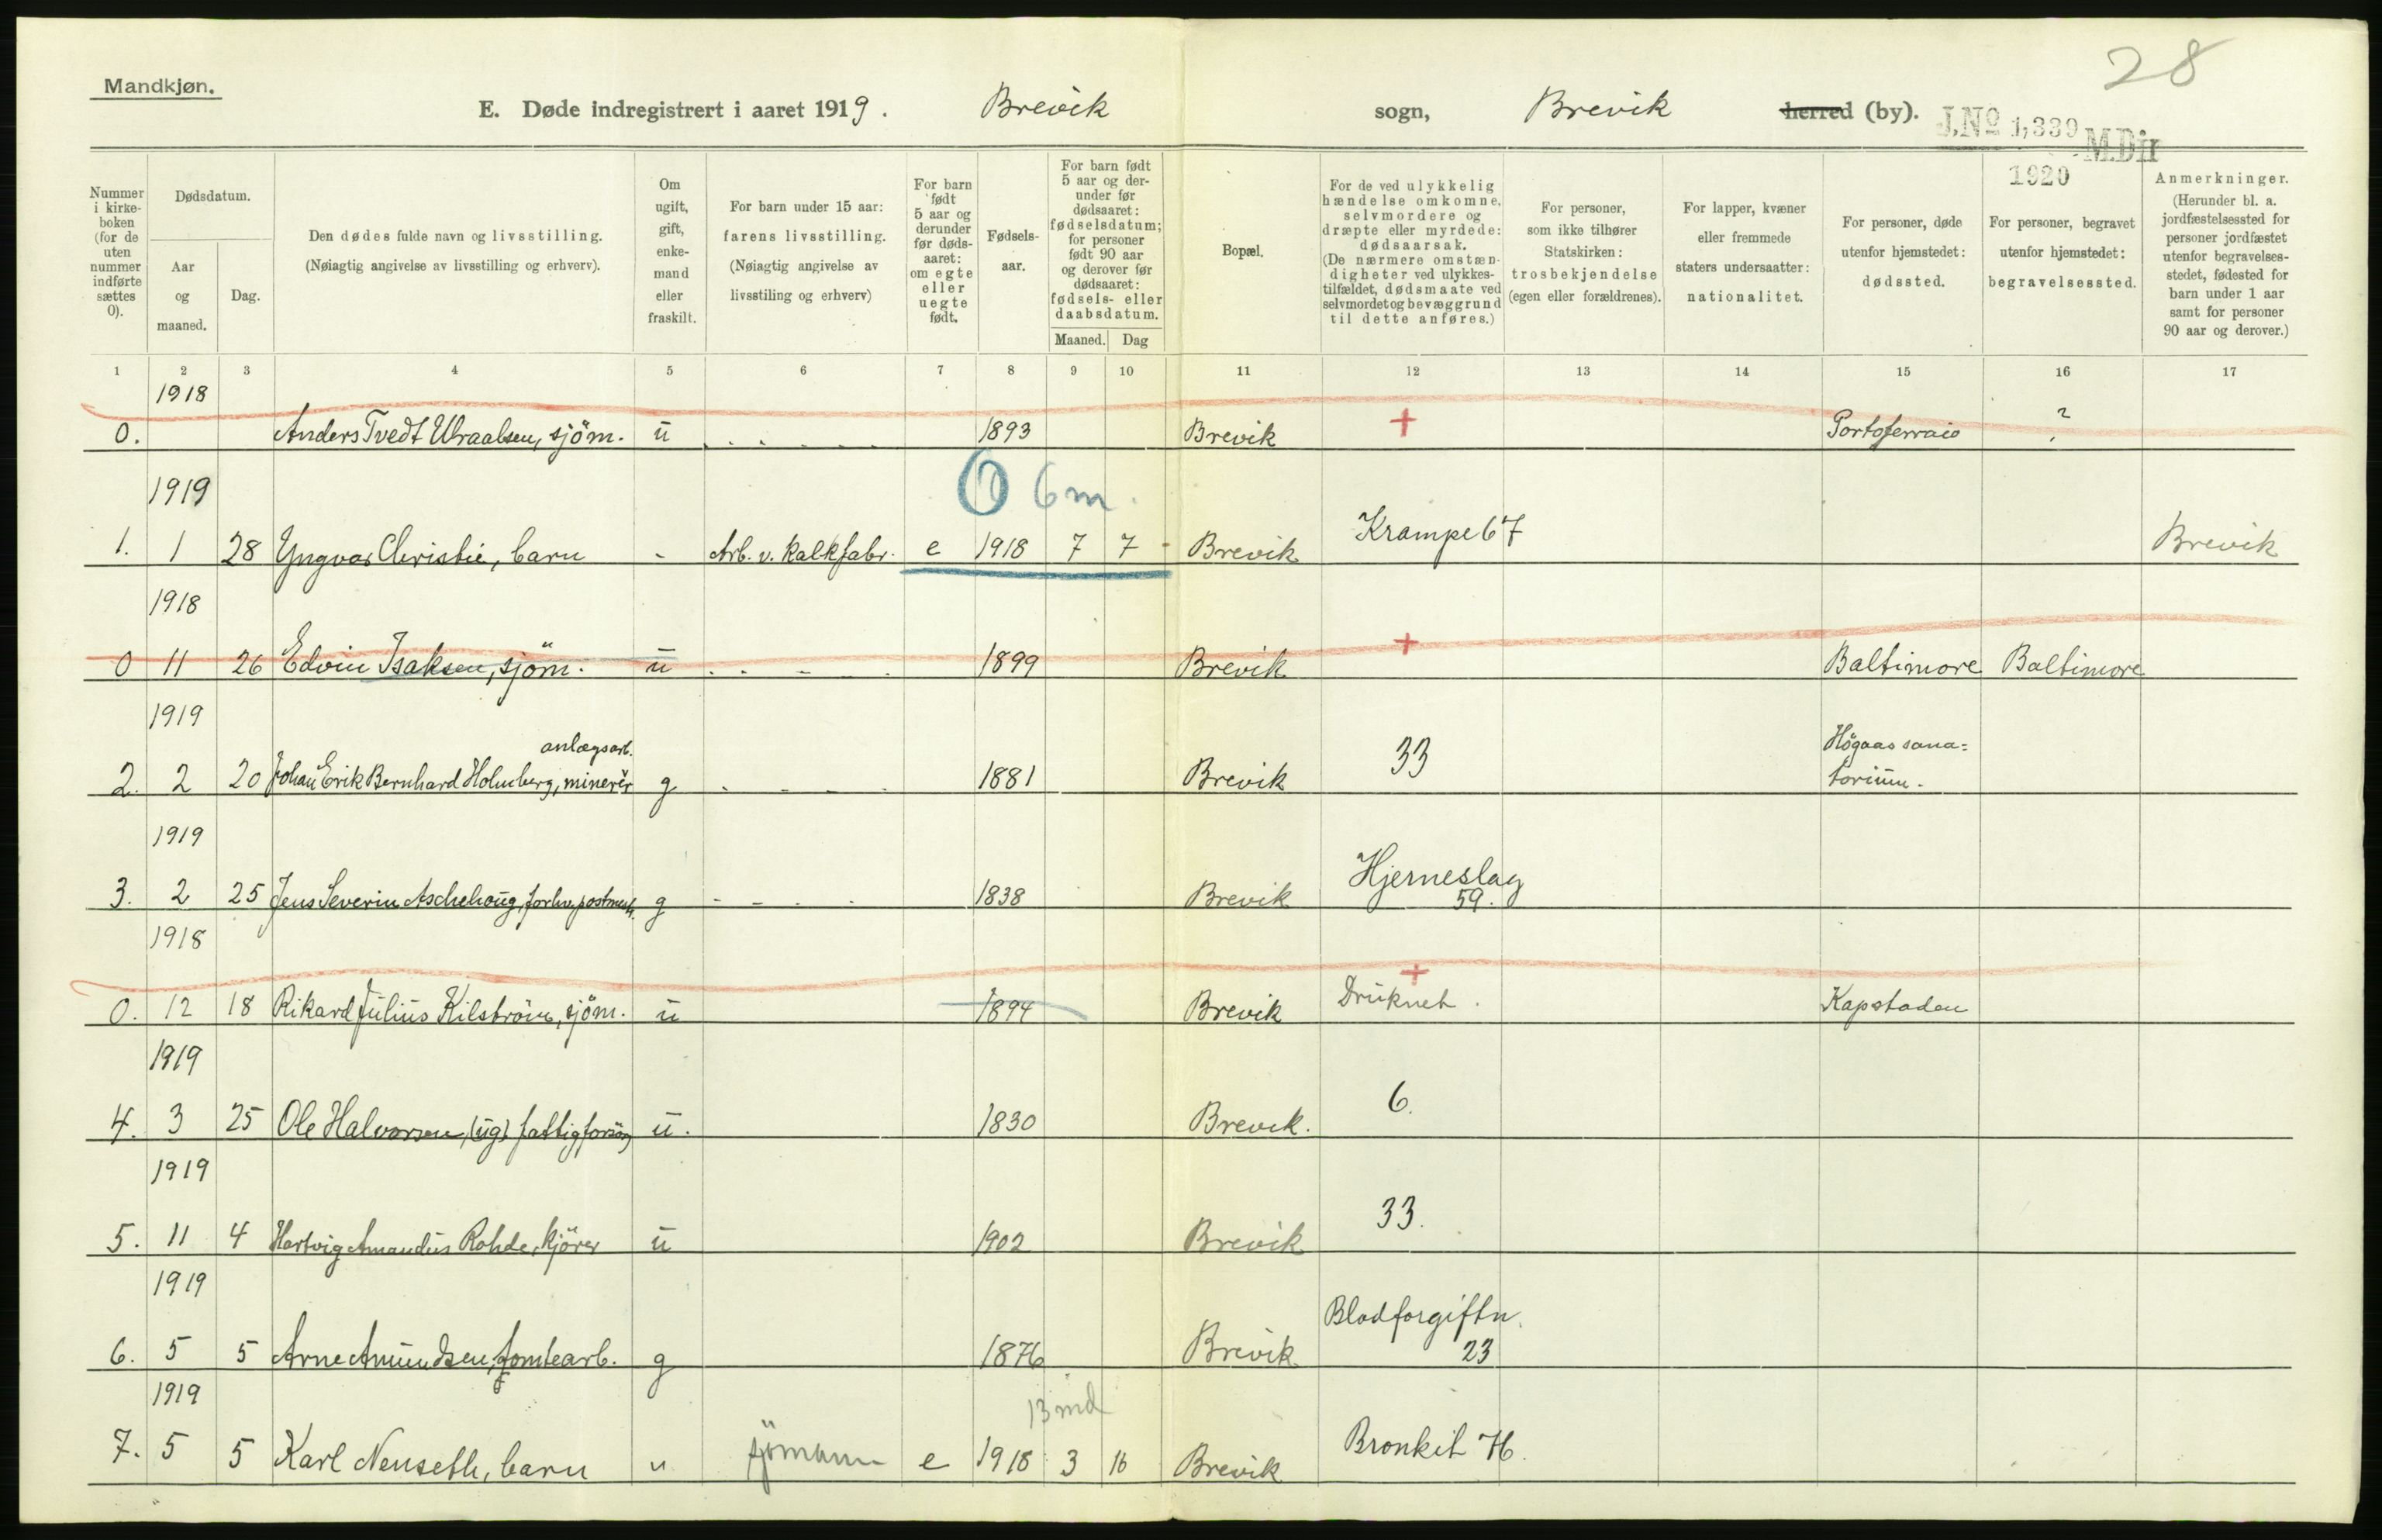 28
Mandkjøn.
E. Døde indregistrert i aaret 1919. Brevik sogn, Brevik herred (by).
J.No 1,339 M.Dir
1920
Nummer i kirkeboken (for de uten nummer indførte sættes 0).
Dødsdatum.
Aar og maaned.
Dag.
Den dødes fulde navn og livsstilling. (Nøiagtig angivelse av livsstilling og erhverv).
Om ugift, gift, enkemand eller fraskilt.
For barn under 15 aar: farens livsstilling. (Nøiagtig angivelse av livsstiling og erhverv)
For barn født 5 aar og derunder før dødsaaret: om egte eller uegte født.
Fødselsaar.
For barn født 5 aar og derunder før dødsaaret: fødselsdatum; for personer født 90 aar og derover før dødsaaret: fødsels- eller daabsdatum.
Maaned. Dag
Bopæl.
For de ved ulykkelig hændelse omkomne, selvmordere og dræpte eller myrdede: dødsaarsak. (De nærmere omstændigheter ved ulykkestilfældet, dødsmaate ved selvmordet og bevæggrund til dette anføres.)
For personer, som ikke tilhører Statskirken: trosbekjendelse (egen eller forældrenes).
For lapper, kvæner eller fremmede staters undersaatter: nationalitet.
For personer, døde utenfor hjemstedet: dødssted.
For personer, begravet utenfor hjemstedet: begravelsessted.
Anmerkninger. (Herunder bl. a. jordfæstelsessted for personer jordfæstet utenfor begravelsesstedet, fødested for barn under 1 aar samt for personer 90 aar og derover.)
1 2 3 4 5 6 7 8 9 10 11 12 13 14 15 16 17
1918
0. Anders Tvedt Uraalsen, sjöm. u 1893 Brevik + Portoferraio ?
1919
0 6 m.
1. 1 28 Yngvar Christie, barn - Arb. v. kalkfabr. e 1918 7 7 - Brevik Krampe 67 Brevik
1918
0 11 26 Edvin Isaksen, sjöm. u 1899 Brevik + Baltimore Baltimore
1919
anlægsarb.
2. 2 20 Johan Erik Bernhard Holmberg, minerer g 1881 Brevik 33 Högaas sana=
torium.
1919
3. 2 25 Jens Severin Aschehoug, forhv. postmest. g 1838 Brevik Hjerneslag
59.
1918
0. 12 18 Rikard Julius Kilström, sjöm. u 1894 Brevik + Druknet. Kapstaden
1919
4. 3 25 Ole Halvorsen, (ug) fattigforsörg u. 1830 Brevik. 6.
1919
5. 11 4 Hartvig Amandus Rohde, kjörer u 1902 Brevik 33.
1919
6. 5 5 Arne Amundsen, tomtearb. g 1876 Brevik Blodforgiftn.
23
1919
13 md
7. 5 5 Karl Nenseth, barn u sjömann e 1918 3 16 Brevik Bronkit 46.